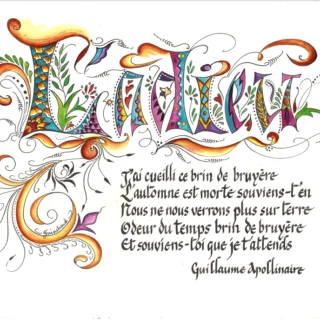 L'adieu
J'ai cueilli ce brin de bruyère
L'automne est morte souviens-t'en
Nous ne nous verrons plus sur terre
Odeur du temps brin de bruyère
Et souviens-toi que je t'attends
Guillaume Apollinaire